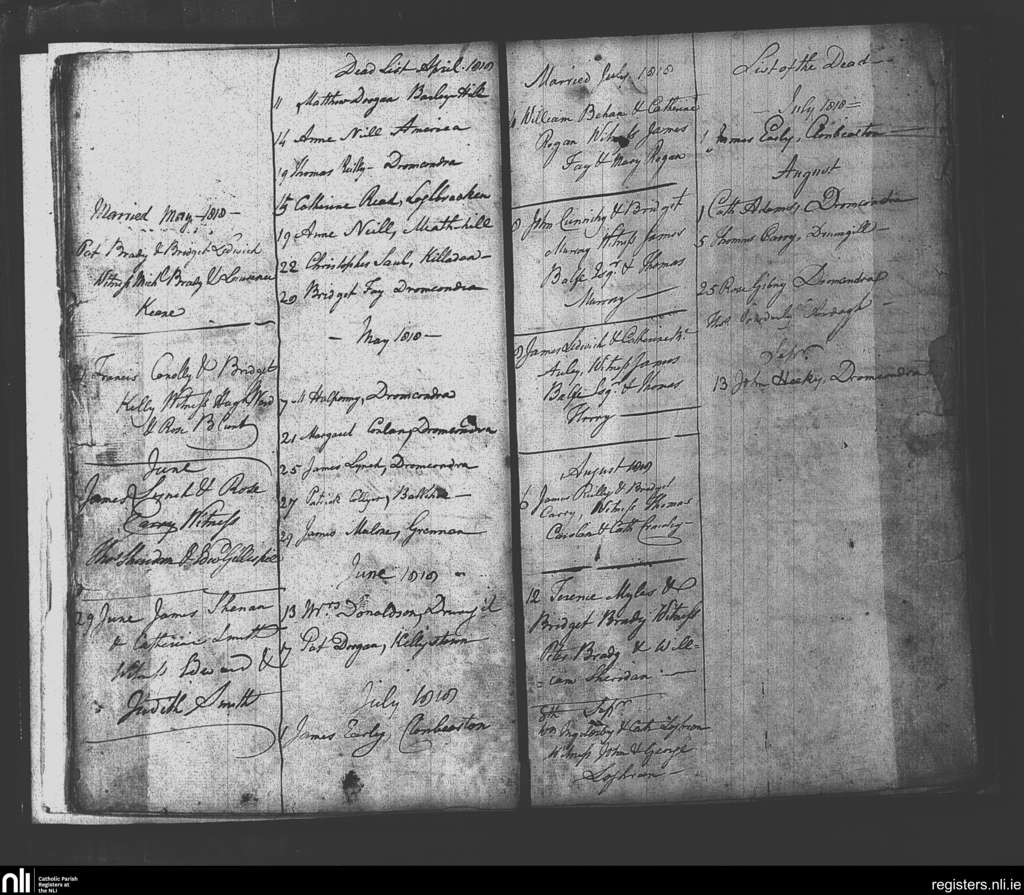 Married May 1810 —
Pat Brady & Bridget Ledwich
Witness Mich. Brady & Lawrence
Keane
Francis Conolly & Bridget
Kelly Witness Hugh Ward
& Rose
June
James Lynch & Rose
Carry Witness
Thos Sheridan &
29 June James Shenan
& Catherine Smith
Witness Edward &
Judith Smith
Dead List April 1810
11 Matthew Dorgan Barley-Hill
14 Anne Nill America
19 Thomas Reilly — Dromcondra
15 Catherine Read, Loghbraaken
19 Anne Neill, Meath-hill
22 Christopher Saul, Killadan —
20 Bridget Fay Dromcondra
— May 1810 —
7 M Halfpenny, Dromcondra
21 Margaret Conlan, Dromcondra
25 James Lynch, Dromcondra
27 Patrick
29 James Malone, Grennan
June 1810 —
13 Mrs Donaldson,
7 Pat Dorgan, Killystown
July 1810
1 James Early, Clonbearton
Married July 1810
William Behan & Catherine
Rogan Witness James
Fay & Mary Rogan
8 John & Bridget
Murray Witness James
Balfe Esqr & Thomas
Murray —
James Ledwich & Catherine
Auley, Witness James
Balfe Esqr & Thomas
Florry —
August 1810
6 James Reilly & Bridget
Carry, Witness Thomas
Carolan & Cath
12 Terence Myles &
Bridget Brady Witness
Peter Brady & Will=
=iam Sheridan —
8th Sepr
& Cath Loghran
Witness John & George
Loghran —
List of the Dead —
— July 1810 =
1 James Early, Clonbearton —
August
1 Cath Adams, Dromcondra
5 Thomas Carry,
25 Rose Gibny Dromcondra
Sepr
13 John Heeky, Dromcondra
nli
Catholic Parish
Registers at
the NLI
registers.nli.ie